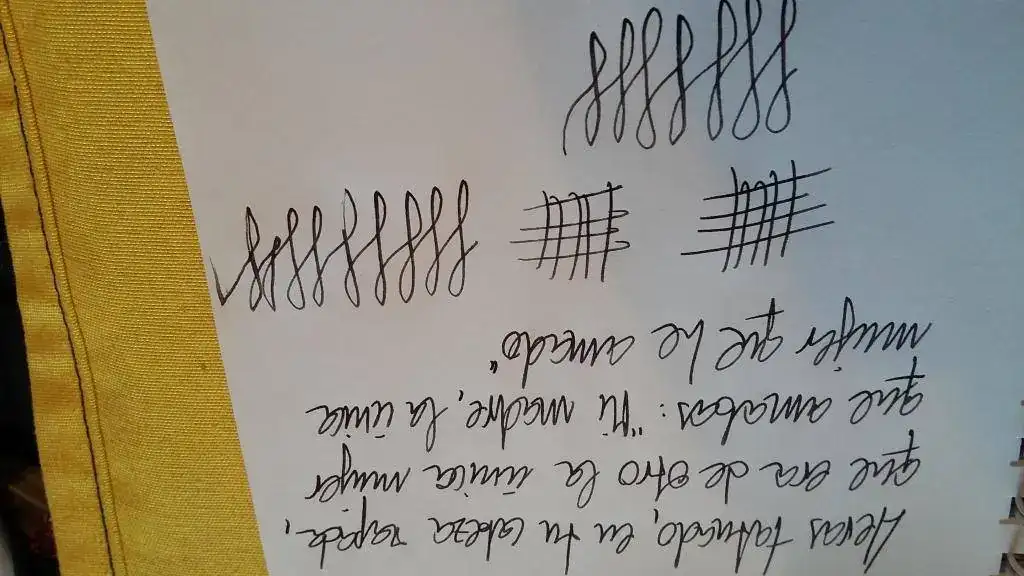 Llevas tatuado, en tu cabeza rapada,
que era de otro la única mujer
que amabas: "Mi madre, la única
mujer que he amado"